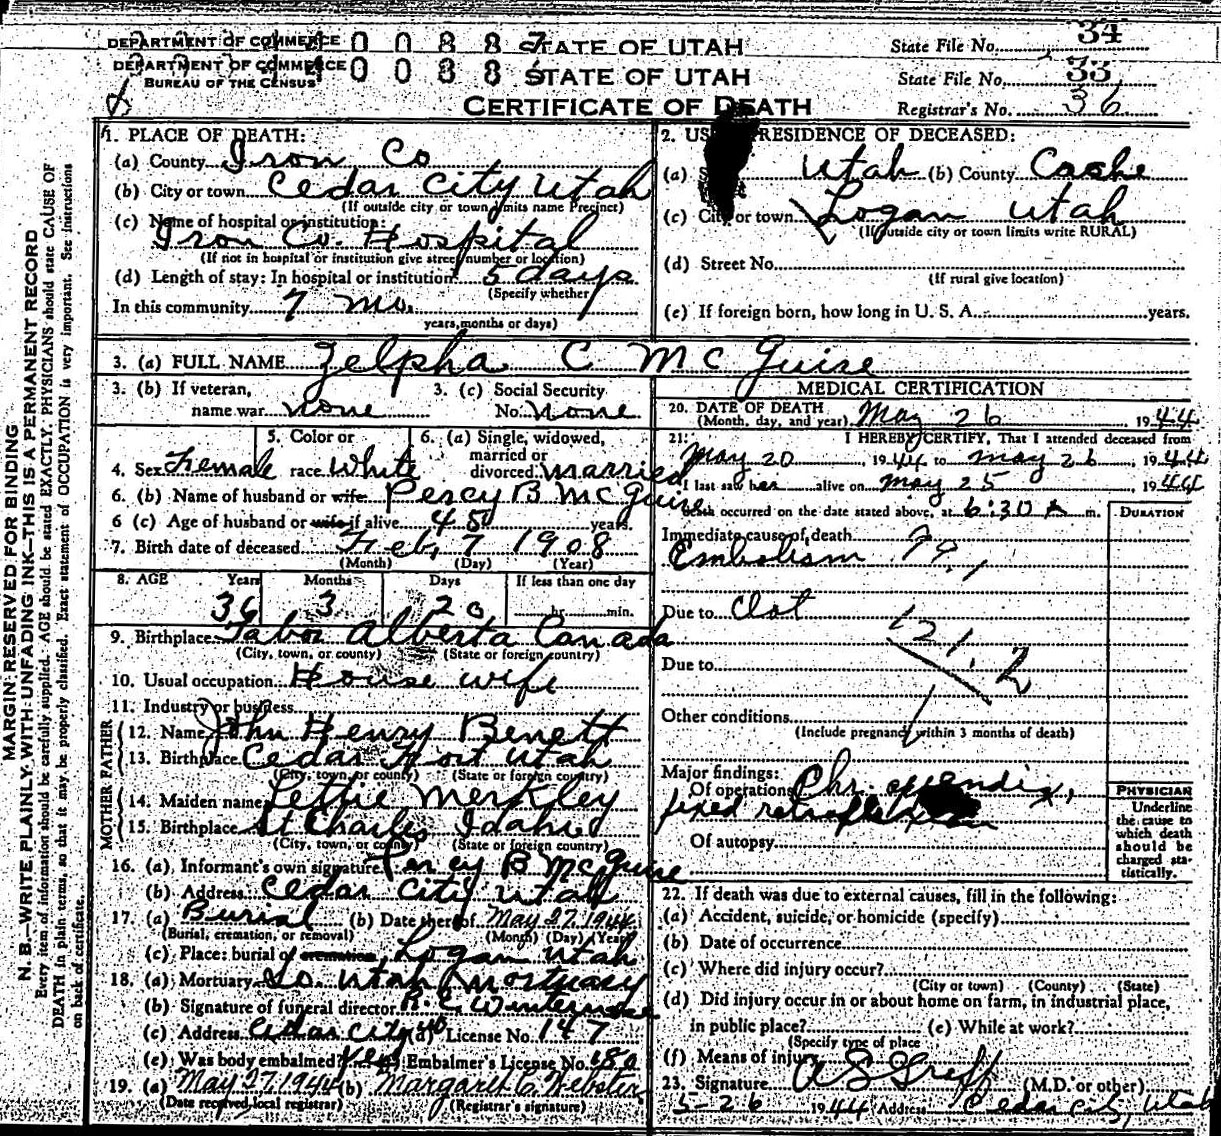 DEPARTMENT OF COMMERCE 0 0 8 8 7 STATE OF UTAH State File No. 34
DEPARTMENT OF COMMERCE 0 0 8 8 STATE OF UTAH State File No. 33
BUREAU OF THE CENSUS
CERTIFICATE OF DEATH Registrar's No. 36
MARGIN RESERVED FOR BINDING
N. B.—WRITE PLAINLY WITH UNFADING INK—THIS IS A PERMANENT RECORD
Every item of information should be carefully supplied. AGE should be stated EXACTLY. PHYSICIANS should state CAUSE OF
DEATH in plain terms, so that it may be properly classified. Exact statement of OCCUPATION is very important. See instructions
on back of certificate.
1. PLACE OF DEATH:
(a) County Iron Co
(b) City or town Cedar City Utah
(If outside city or town limits name Precinct)
(c) Name of hospital or institution:
Iron Co. Hospital
(If not in hospital or institution give street number or location)
(d) Length of stay: In hospital or institution 5 days
(Specify whether
In this community 7 mo.
years, months or days)
2. USUAL RESIDENCE OF DECEASED:
(a) S Utah (b) County Cache
(c) City or town Logan Utah
(If outside city or town limits write RURAL)
(d) Street No.
(If rural give location)
(e) If foreign born, how long in U. S. A. years.
3. (a) FULL NAME Zelpha C McGuire
3. (b) If veteran, 3. (c) Social Security
name war none No. none
5. Color or 6. (a) Single, widowed,
married or
4. Sex Female race White divorced married
6. (b) Name of husband or wife Percy B McGuire
6 (c) Age of husband or wife if alive 45 years.
7. Birth date of deceased Feb. 7 1908
(Month) (Day) (Year)
8. AGE Years Months Days If less than one day
36 3 20 hr. min.
9. Birthplace Tabor Alberta Canada
(City, town, or county) (State or foreign country)
10. Usual occupation House wife
11. Industry or business
FATHER
12. Name John Henry Benett
13. Birthplace Cedar Fort Utah
(City, town, or county) (State or foreign country)
MOTHER
14. Maiden name Lettie Merkley
15. Birthplace St Charles Idaho
(City, town, or county) (State or foreign country)
16. (a) Informant's own signature Percy B McGuire
(b) Address Cedar City Utah
17. (a) Burial (b) Date thereof May 27, 1944
(Burial, cremation, or removal) (Month) (Day) (Year)
(c) Place: burial or cremation Logan Utah
18. (a) Mortuary So. Utah Mortuary
(b) Signature of funeral director
(c) Address Cedar City (d) License No. 147
(e) Was body embalmed? Yes Embalmer's License No.
19. (a) May 27, 1944 (b) Margaret C. Webster
(Date received local registrar) (Registrar's signature)
MEDICAL CERTIFICATION
20. DATE OF DEATH
(Month, day, and year) May 26, 1944
21. I HEREBY CERTIFY, That I attended deceased from
May 20, 1944 to May 26, 1944
I last saw her alive on May 25 1944
Death occurred on the date stated above, at 6:30 A m. DURATION
Immediate cause of death
Embolism
Due to clot
121.2
Due to
Other conditions
(Include pregnancy within 3 months of death)
Major findings:
Of operations Chr. appendix,
fixed
Of autopsy
PHYSICIAN
Underline
the cause to
which death
should be
charged sta-
tistically.
22. If death was due to external causes, fill in the following:
(a) Accident, suicide, or homicide (specify)
(b) Date of occurrence
(c) Where did injury occur?
(City or town) (County) (State)
(d) Did injury occur in or about home on farm, in industrial place,
in public place? (e) While at work?
(Specify type of place
(f) Means of injury
23. Signature (M.D. or other)
5-26 1944 Address Cedar City, Utah